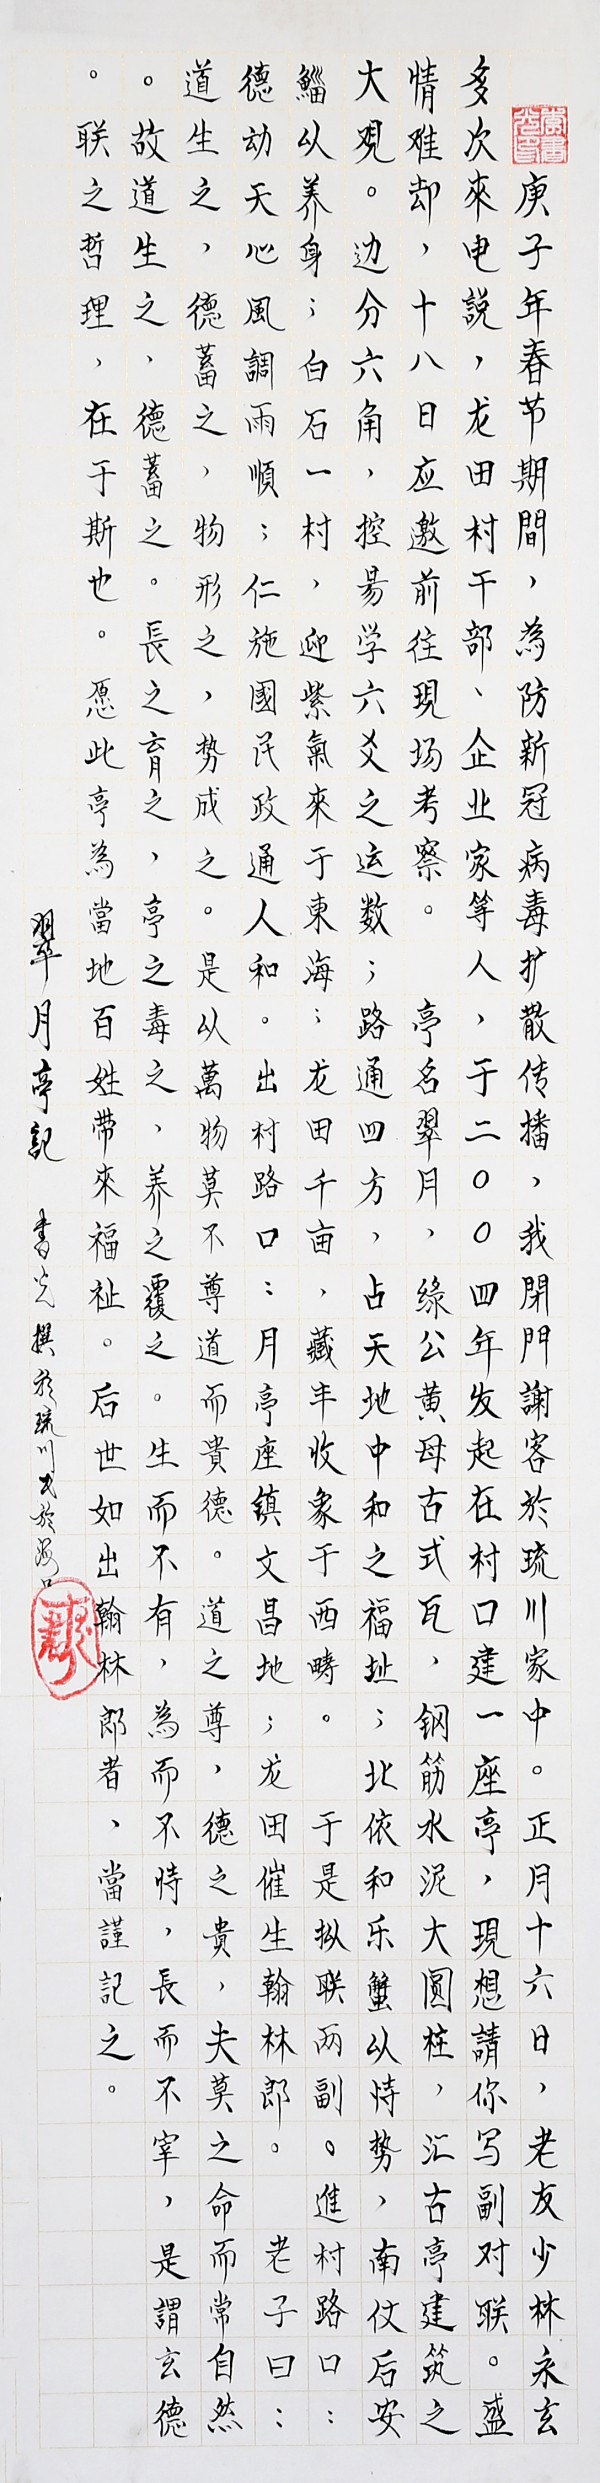 庚子年春节期間，為防新冠病毒扩散传播，我閉門謝客於琉川家中。正月十六日，老友少林永玄
多次來电説，龙田村干部、企业家等人，于二〇〇四年发起在村口建一座亭，現想請你写副对联。盛
情难却，十八日应邀前往現场考察。　亭名翠月，缘公黄母古式瓦，钢筋水泥大圆柱，汇古亭建筑之
大观。边分六角，控易学六爻之运数；路通四方，占天地中和之福址；北依和乐蟹以恃势，南仗后安
鲻以养身；白石一村，迎紫氣來于東海；龙田千亩，藏丰收象于西畴。　于是拟联两副。進村路口：
德动天心風調雨順；仁施國民政通人和。出村路口：月亭座镇文昌地；龙田催生翰林郎。　老子曰：
道生之，德蓄之，物形之，势成之。是以萬物莫不尊道而貴德。道之尊，德之貴，夫莫之命而常自然
。故道生之，德蓄之。長之育之，亭之毒之，养之覆之。生而不有，為而不恃，長而不宰，是謂玄德
。联之哲理，在于斯也。愿此亭為當地百姓带來福祉。后世如出翰林郎者，當謹記之。
翠月亭記　書光撰於琉川 於海口